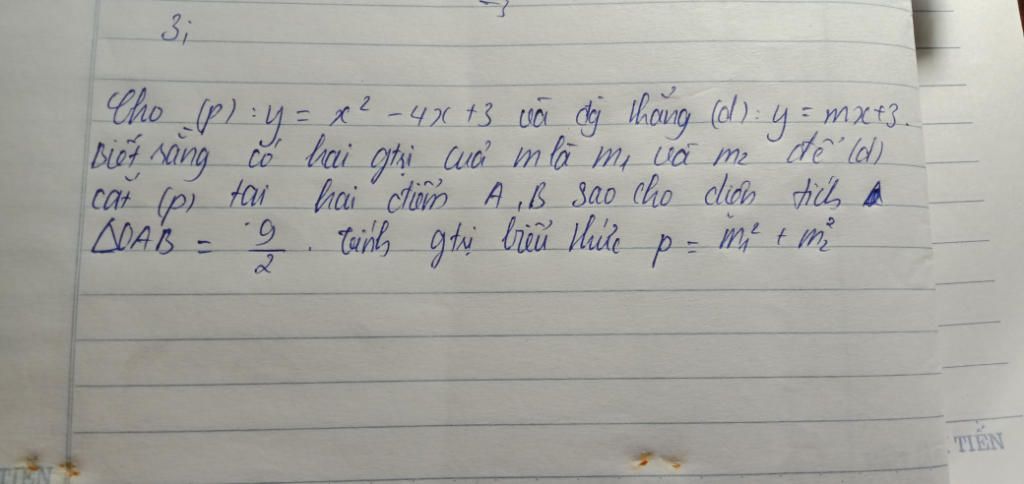 3;
Cho (p) : y = x² - 4x + 3 và đg thẳng (d) : y = mx+3.
Biết rằng có hai gtrị của m là m₁ và m₂ để (d)
cắt (p) tại hai điểm A, B sao cho diện tích
ΔOAB = 9/2 . tính gtrị biểu thức p = m₁² + m₂²
TIẾN
TIẾN